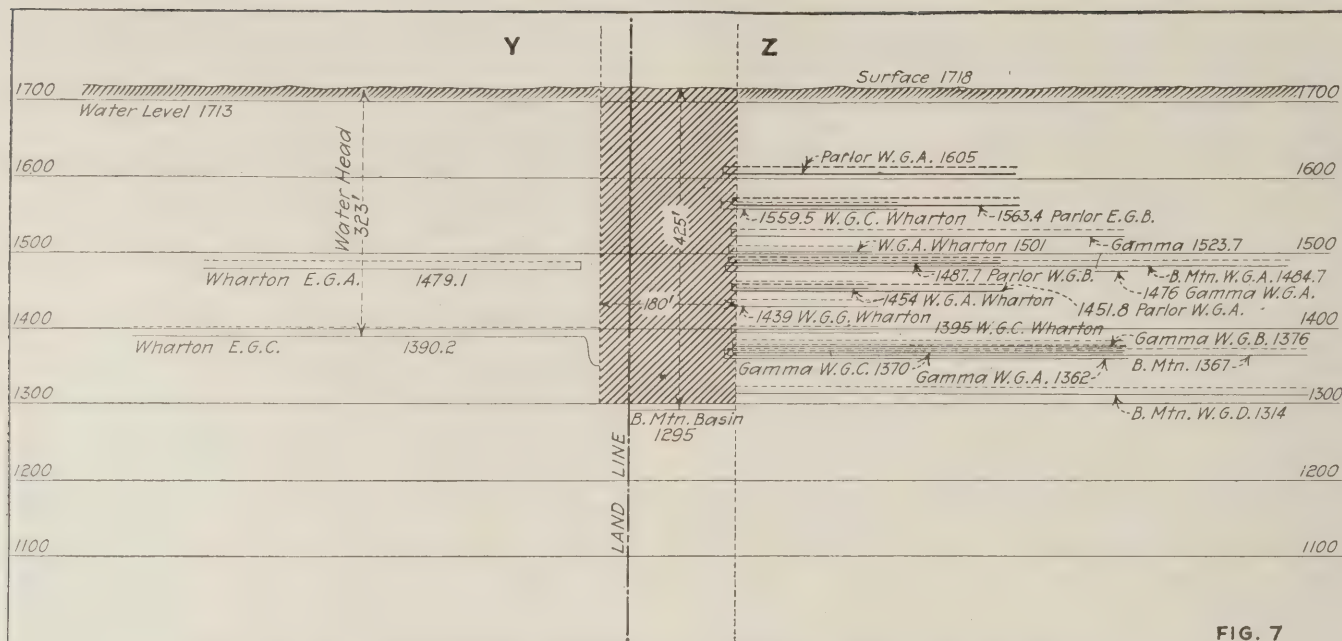 Y
Z
Surface 1718
1700
1700
Water Level 1713
Water Head
323'
Parlor W.G.A. 1605
1600
1600
425'
1559.5 W.G.C. Wharton
1563.4 Parlor E.G.B.
W.G.A. Wharton 1501
Gamma 1523.7
1500
1500
Wharton E.G.A. 1479.1
1487.7 Parlor W.G.B.
B. Mtn. W.G.A. 1484.7
1476 Gamma W.G.A.
180'
1454 W.G.A. Wharton
1451.8 Parlor W.G.A.
1439 W.G.G. Wharton
1400
1400
1395 W.G.C. Wharton
Wharton E.G.C. 1390.2
Gamma W.G.B. 1376
Gamma W.G.C. 1370
Gamma W.G.A. 1362
B. Mtn. 1367
1300
1300
B. Mtn. Basin
1295
B. Mtn. W.G.D. 1314
LAND LINE
1200
1200
1100
1100
FIG. 7